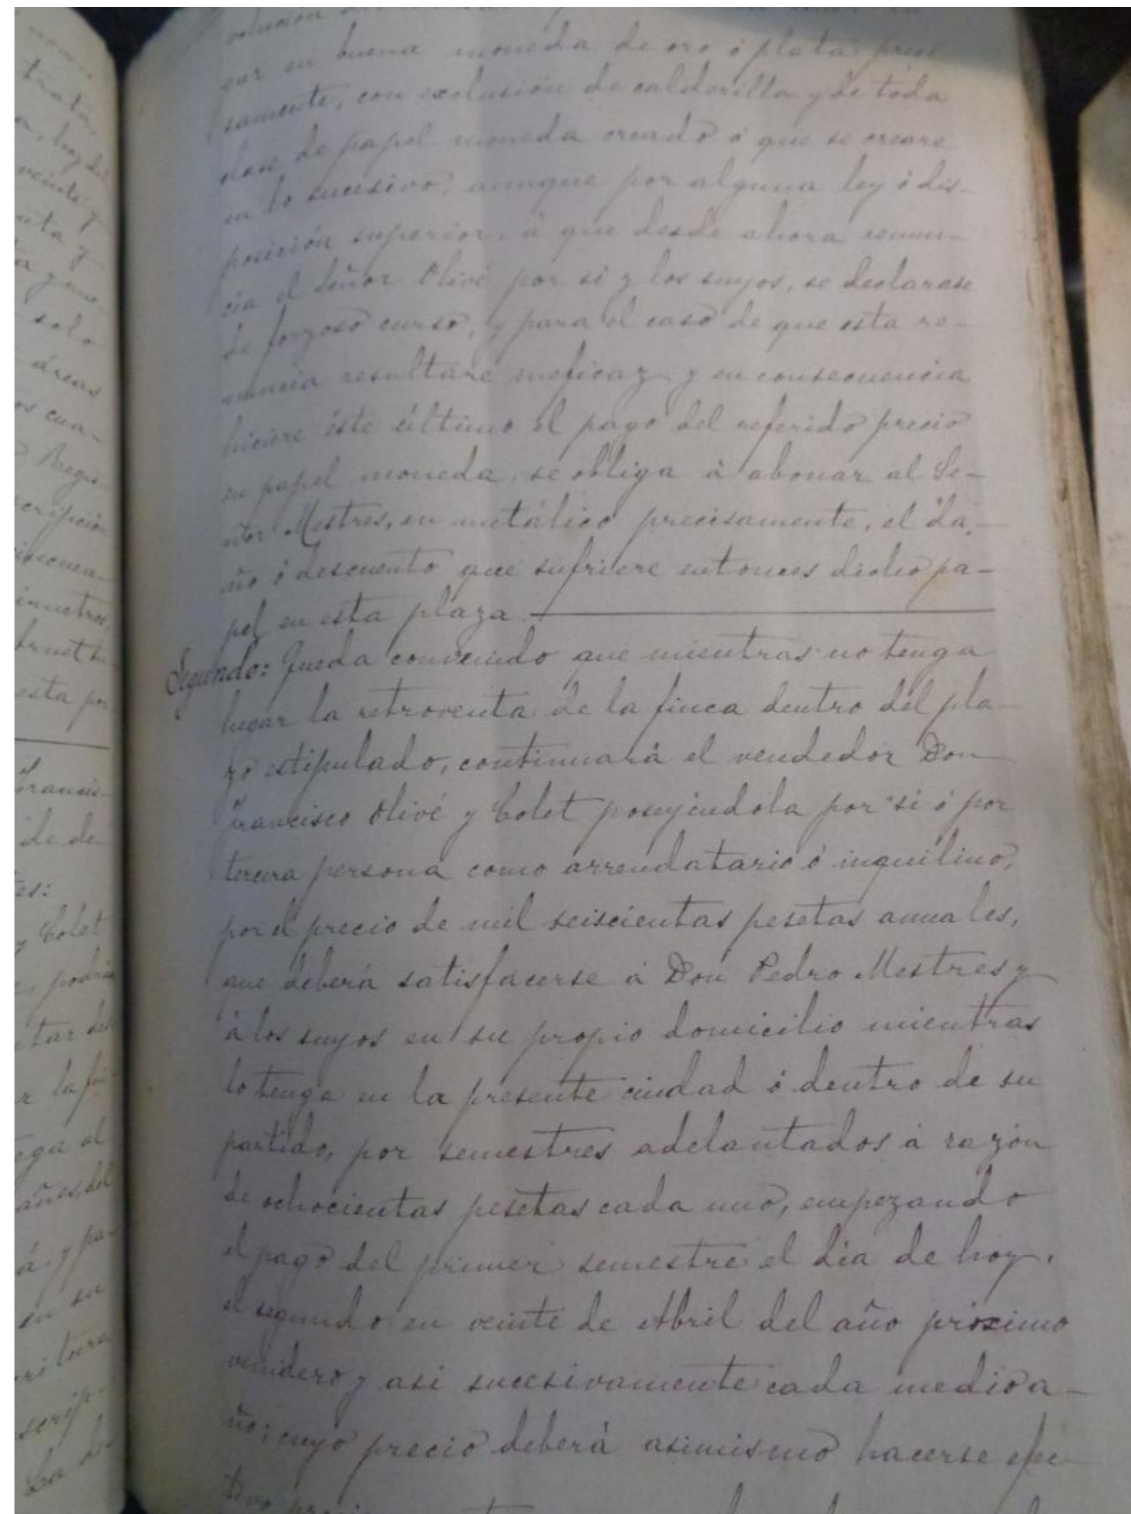 gar en buena moneda de oro ó plata preci
samente, con exclusión de calderilla y de toda
clase de papel moneda creado ó que se creare
en lo sucesivo, aunque por alguna ley ó dis-
posición superior, á que desde ahora renun-
cia el Señor Olivé por si y los suyos, se declarase
de forzoso curso, y para el caso de que esta re-
nuncia resultare ineficaz y en consecuencia
hiciere éste último el pago del referido precio
en papel moneda, se obliga á abonar al Se-
ñor Mestres, en metálico precisamente, el da-
ño ó descuento que sufriere entonces dicho pa-
pel en esta plaza
Segundo: Queda convenido que mientras no tenga
lugar la retroventa de la finca dentro del pla-
zo estipulado, continuará el vendedor Don
Francisco Olivé y Colet poseyéndola por si ó por
tercera persona como arrendatario ó inquilino,
por el precio de mil seiscientas pesetas anuales,
que deberá satisfacerse á Don Pedro Mestres y
á los suyos en su propio domicilio mientras
lo tenga en la presente ciudad ó dentro de su
partido, por semestres adelantados á razón
de ochocientas pesetas cada uno, empezando
el pago del primer semestre el dia de hoy,
el segundo en veinte de Abril del año próximo
venidero y asi sucesivamente cada medio a-
ño; cuyo precio deberá asimismo hacerse efec